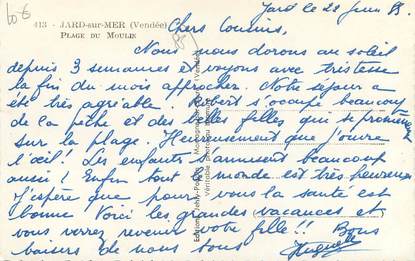 Lot 6
413 - JARD-sur-MER (Vendée)
PLAGE DU MOULIN
Jard le 22 Juin
Chers Cousins,
Nous nous dorons au soleil
depuis 3 semaines et voyons avec tristesse
la fin du mois approcher. Notre séjour a
été très agréable. Robert s'occupe beaucoup
de la pêche et des belles filles qui se promènent
sur la plage. Heureusement que j'ouvre
l'œil! Les enfants s'amusent beaucoup
aussi! Enfin tout le monde est très heureux
J'espère que pour vous la santé est
bonne. Voici les grandes vacances et
vous verrez revenir votre fille!! Bons
baisers de nous tous
Huguette
Véritable